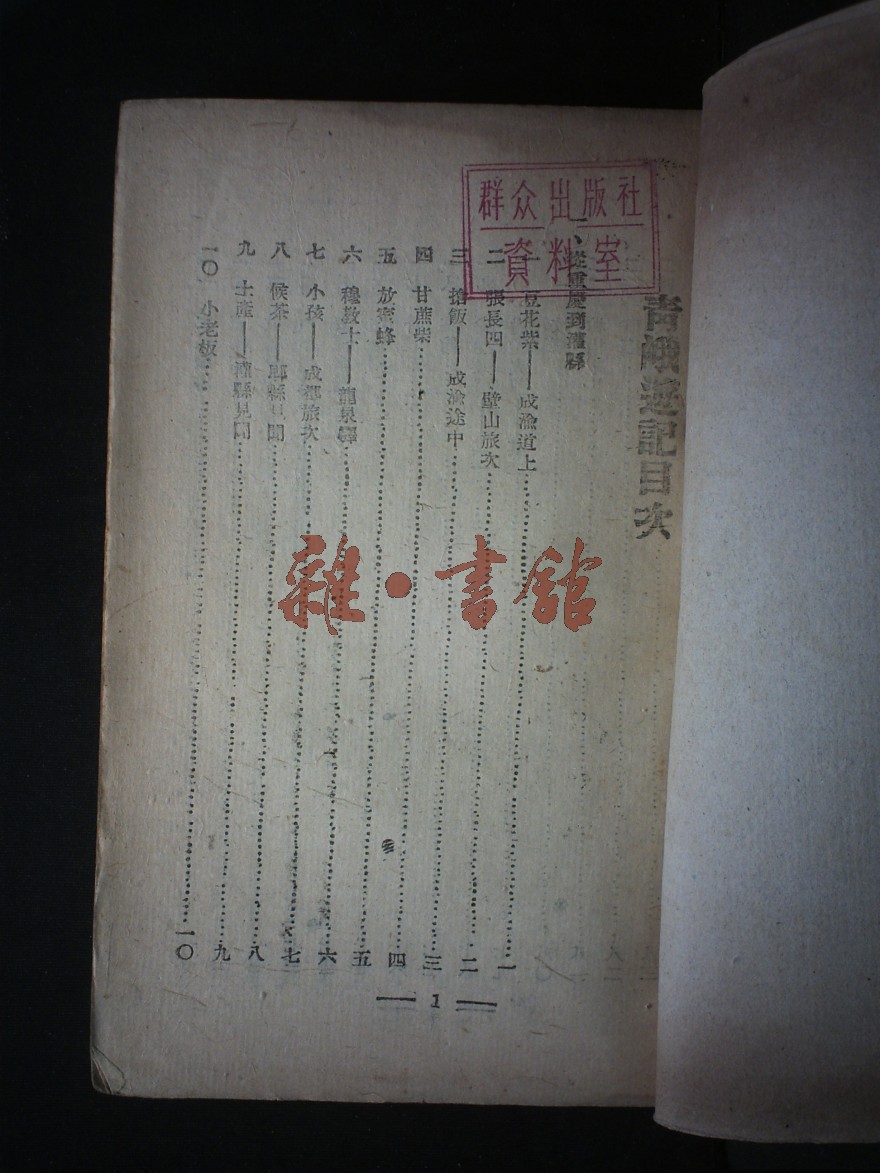 青峨遊記目次
一、從重慶到灌縣
一 豆花紫——成渝道上……一
二 張長四——壁山旅次……二
三 搶飯——成渝途中……三
四 甘蔗柴……四
五 放蜜蜂……五
六 穆敎士——龍泉驛……六
七 小孩——成都旅次……七
八 候茶——郫縣見聞……八
九 土產——灌縣見聞……九
一〇 小老板……一〇
1
群众出版社
資料室
雜·書館